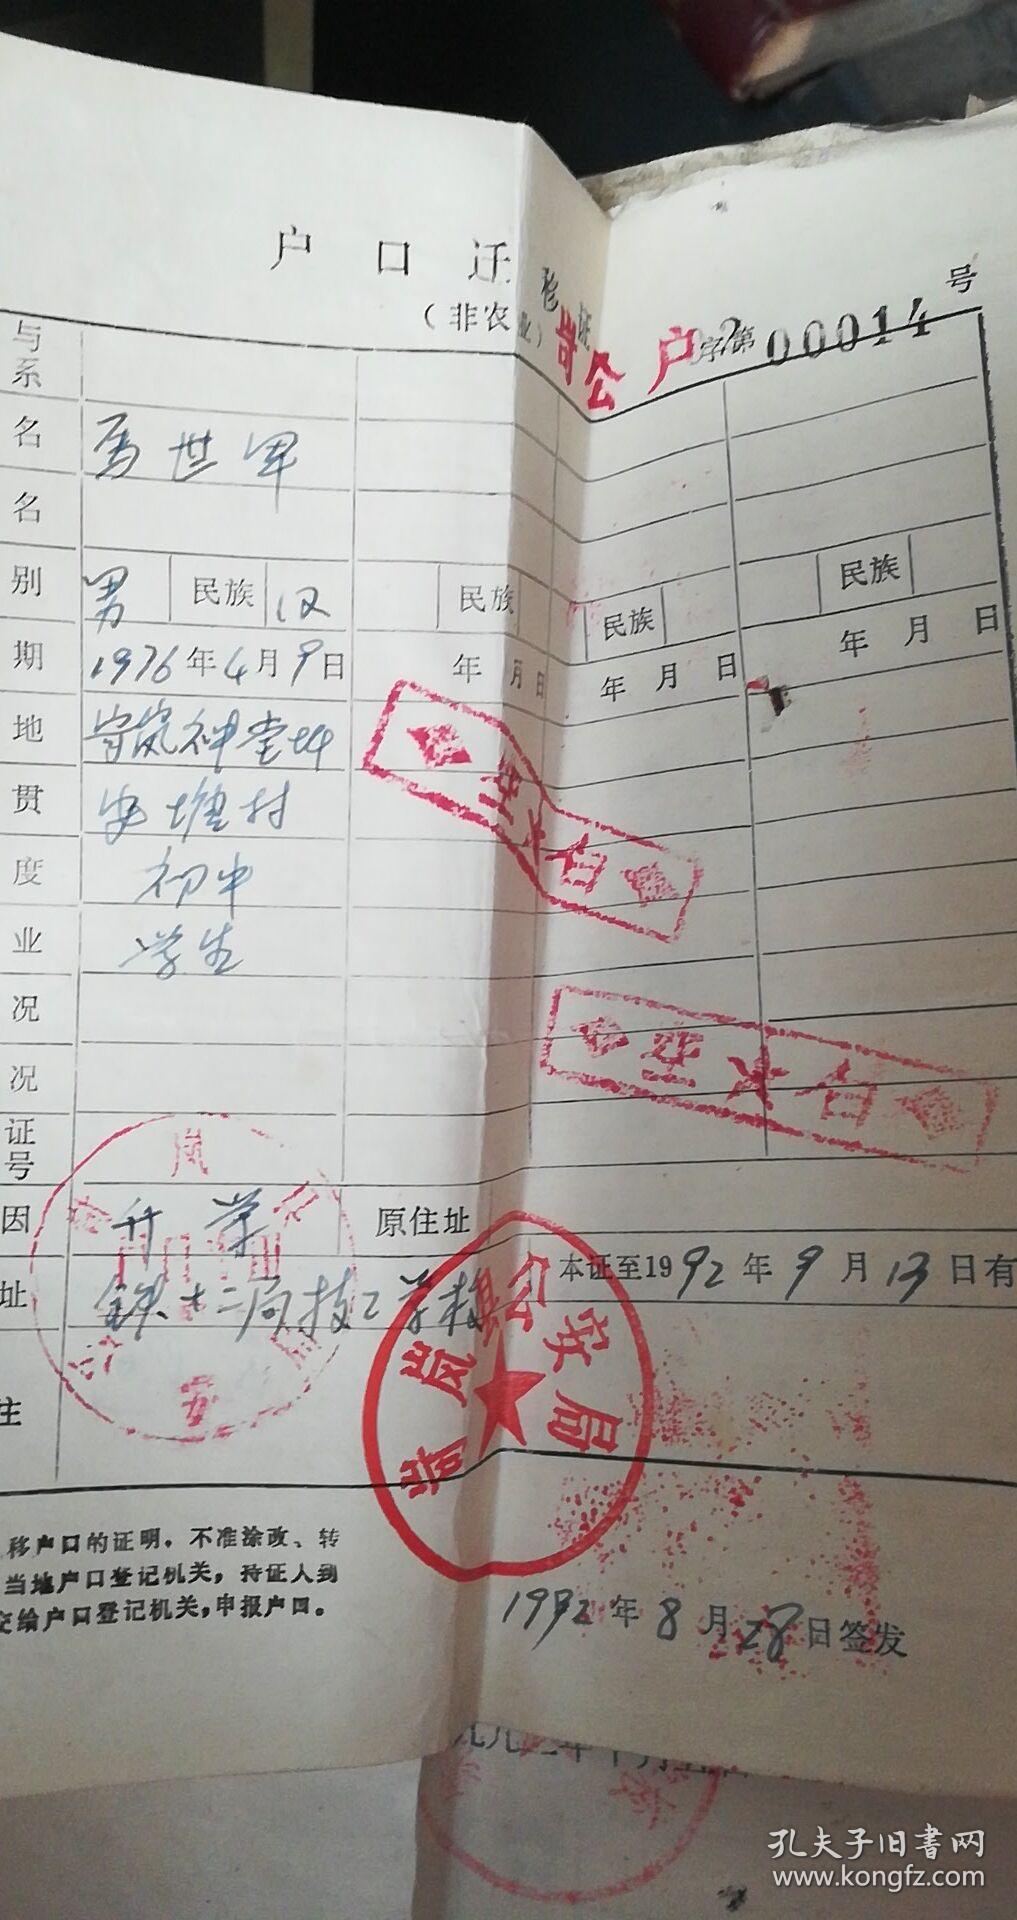 户 口 迁 移 证
（非农业）
岢公户 字第 00014 号
与
系
名 马世军
名
别 男 民族 汉 民族 民族 民族
期 1976年4月9日 年 月 日 年 月 日 年 月 日
地 岢岚神堂坪
贯 安塘村
度 初中
业 学生
况
况
证
号
因 升学 原住址
址 铁十二局技工学校 本证至1992年9月13日有
注
以下空白
以下空白
岢岚县公安局
移户口的证明，不准涂改、转
当地户口登记机关，持证人到
交给户口登记机关，申报户口。
1992年8月28日签发
孔夫子旧书网
www.kongfz.com